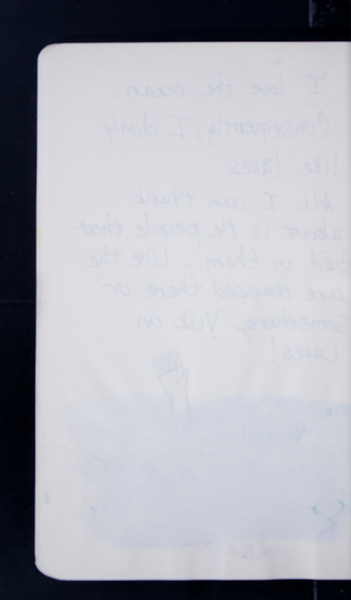 I love the ocean.
Consequently, I don't
like lakes
All I can think
about is the people that
died in them... like the
are trapped there or
something. Yuk on
Lakes!